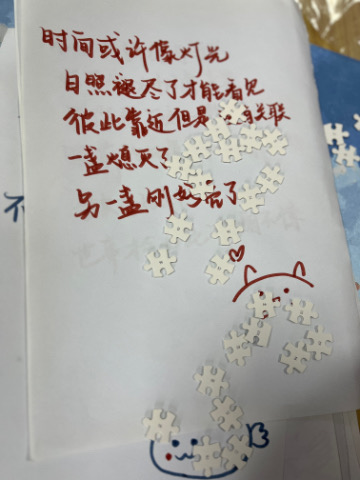 时间或许像灯光
日照褪尽了才能看见
彼此靠近但是没有关联
一盏熄灭了
另一盏刚好亮了
不